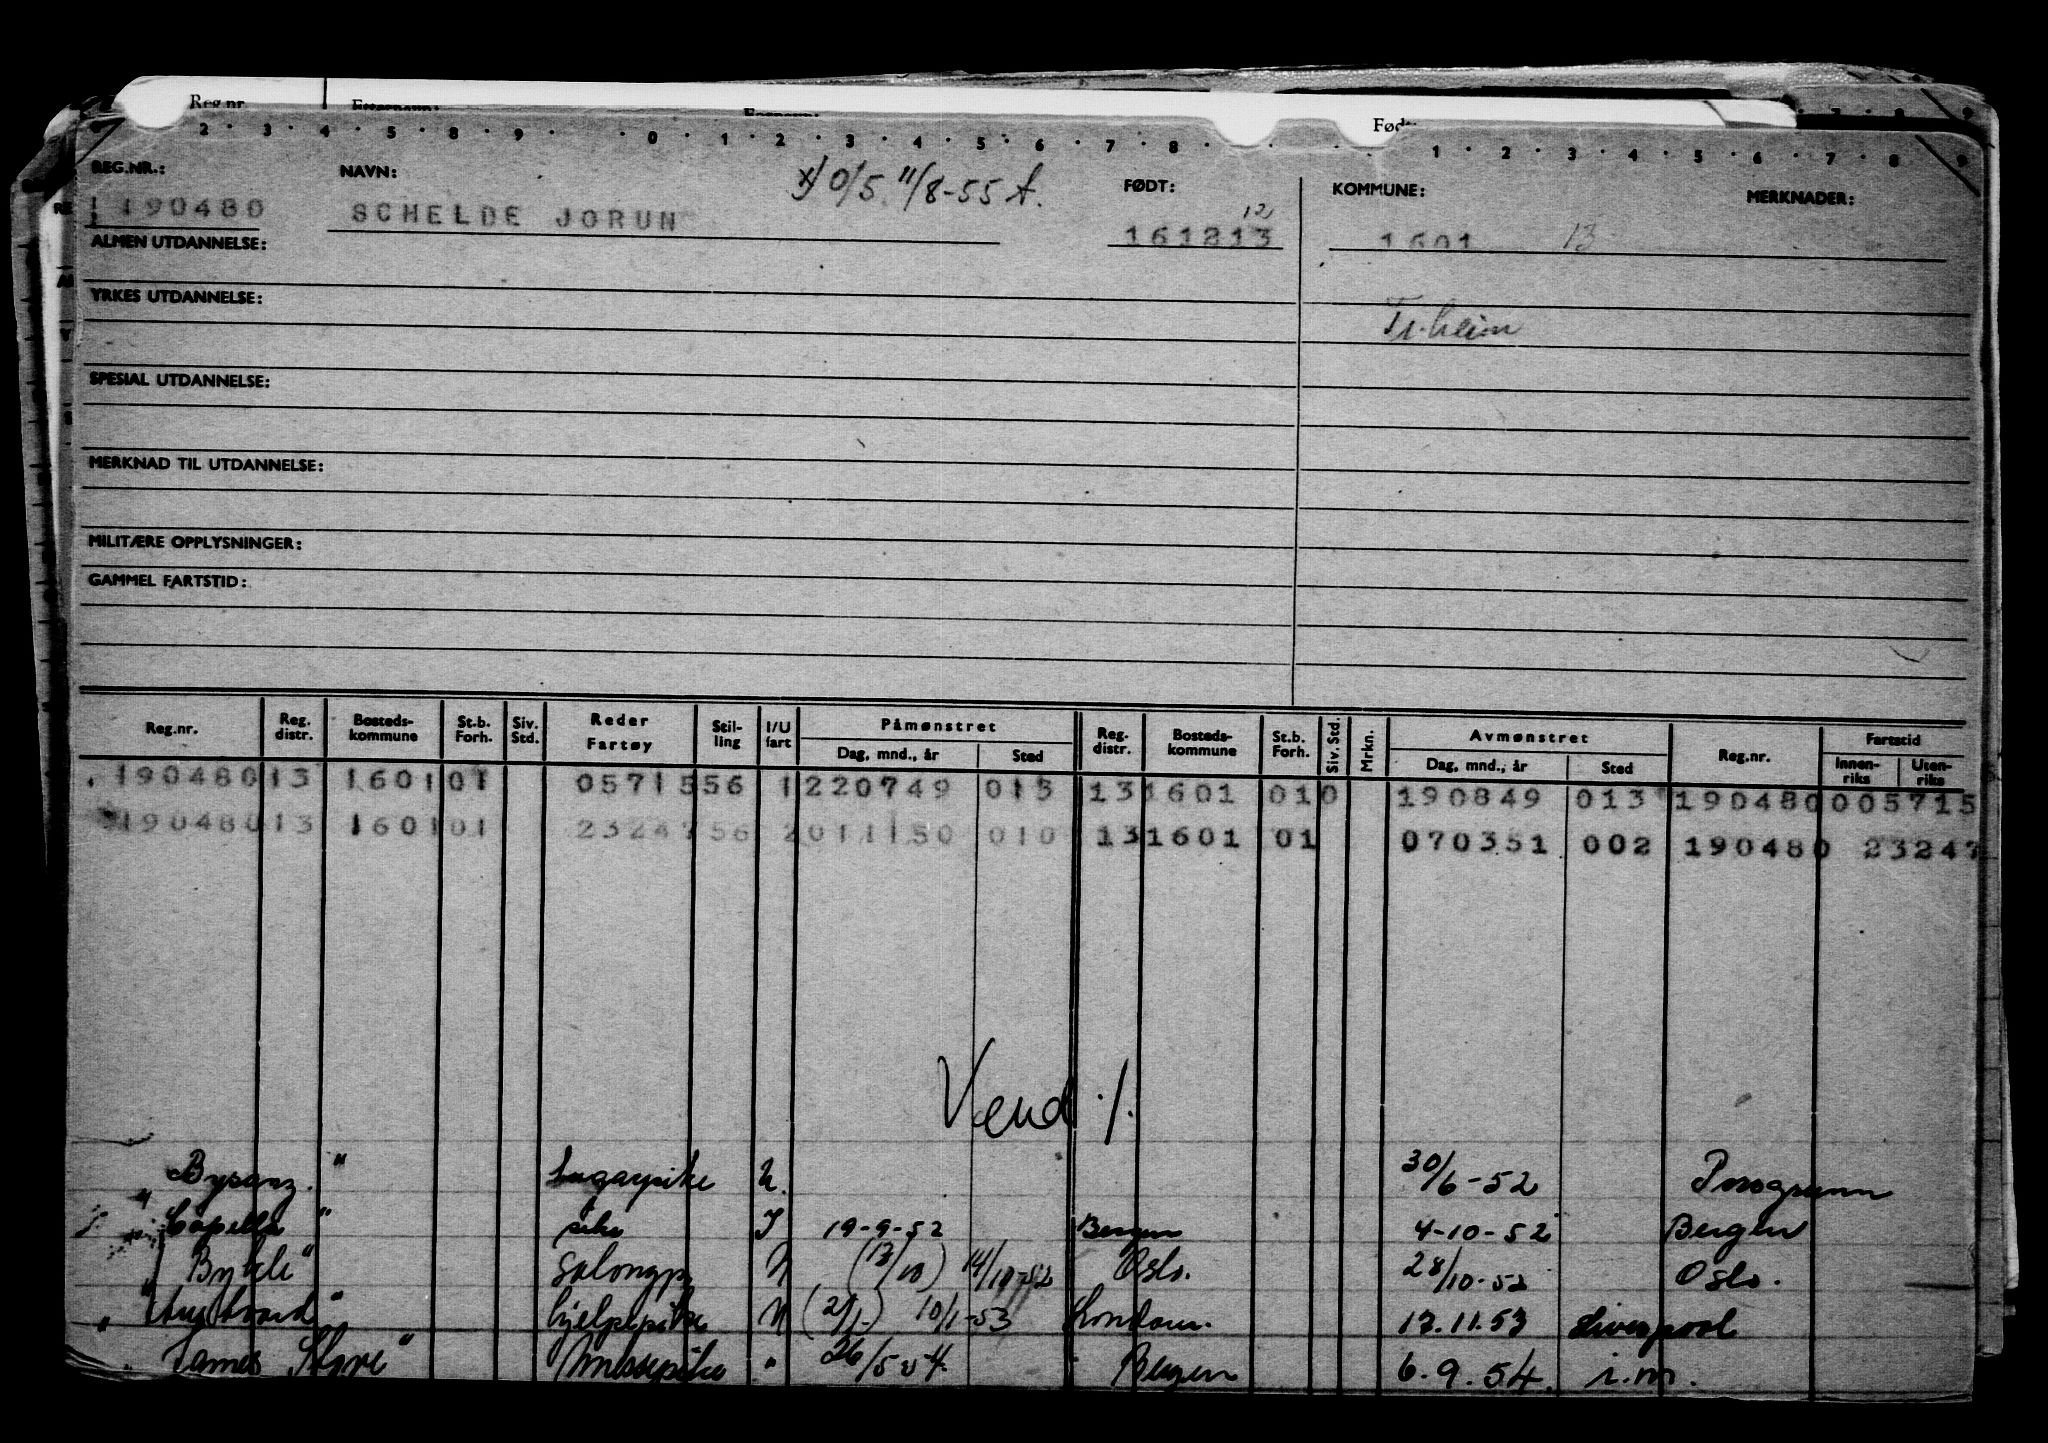 Reg.nr. Etternavn: Fornavn: Født:
2 · 3 · 4 · 5 · 8 · 9 · 0 · 1 · 2 · 3 · 4 · 5 · 6 · 7 · 8 · 1 · 2 · 3 · 4 · 5 · 6 · 7 · 8 · 9
REG.NR.: NAVN: x) 0/5 11/8-55 A. FØDT: KOMMUNE: MERKNADER:
190480 SCHELDE JORUN 161213 12 1601 13
ALMEN UTDANNELSE:
YRKES UTDANNELSE:
Tr.heim
SPESIAL UTDANNELSE:
MERKNAD TIL UTDANNELSE:
MILITÆRE OPPLYSNINGER:
GAMMEL FARTSTID:
Reg.nr. Reg. distr. Bosteds-kommune St.b. Forh. Siv. Std. Reder Fartøy Stil-ling I/U fart Påmønstret Dag, mnd., år Sted Reg. distr. Bosteds-kommune St.b. Forh. Siv. Std. Mrkn. Avmønstret Dag, mnd., år Sted Reg.nr. Fartstid Innen-riks Uten-riks
190480 13 1601 01 05715 56 1 220749 013 13 1601 01 0 190849 013 190480 005715
190480 13 1601 01 23247 56 2 011150 010 13 1601 01 070351 002 190480 23247
Vend ./.
Bysanz " lugarpike U. 30/6-52 Porsgrunn
" Capella " pike I 19-9-52 Bergen 4-10-52 Bergen
Bykle " salongp U (13/10) 14/10-52 Oslo. 28/10-52 Oslo.
" " hjelpepike U (2/1-) 10/1-53 London. 13.11.53 Liverpool
" James Stove " Messepike " 26/5-54. Bergen 6.9.54. i.m.